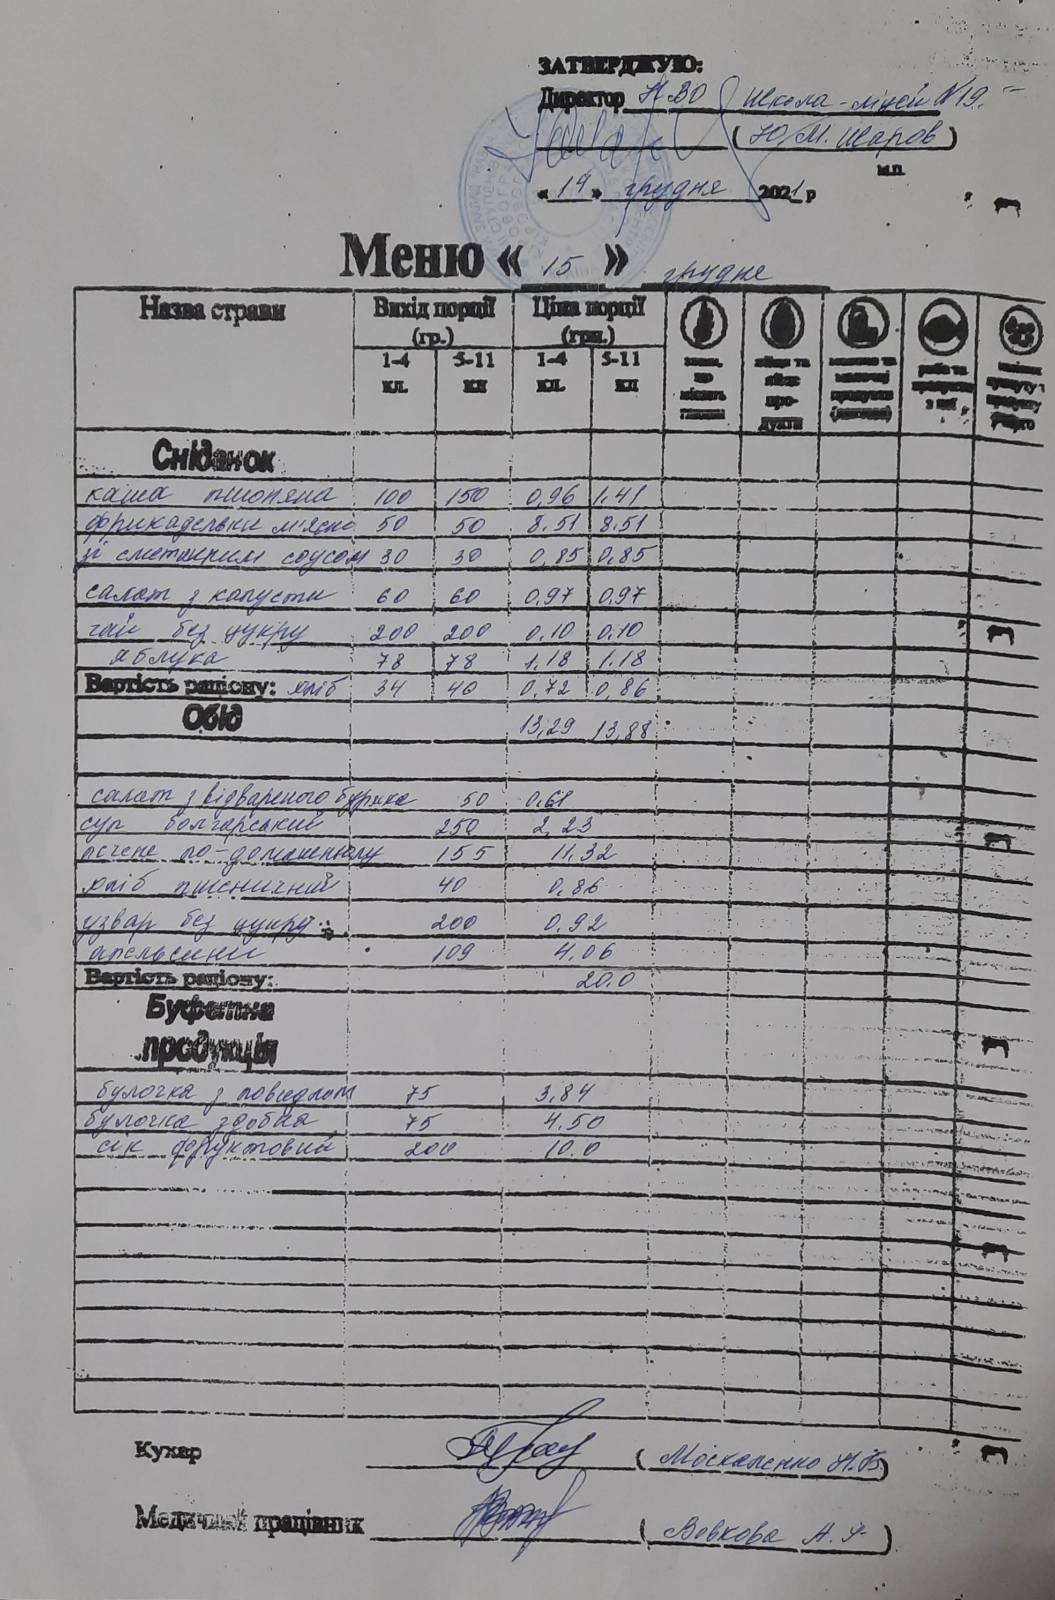 ЗАТВЕРДЖУЮ:
Директор НВО школа-ліцей №19
(Ю.М. Шаров)
м.п.
«14» грудня 2021 р
Меню «15» грудня
Назва страви Вихід порції (гр.) Ціна порції (грн.)
1-4 кл. 5-11 кл 1-4 кл. 5-11 кл
яйця та яйце продукти
риба та продукти з неї
Сніданок
каша пшоняна 100 150 0,96 1.41
фрикадельки м'ясні 50 50 8.51 8.51
зі сметанним соусом 30 30 0,85 0,85
салат з капусти 60 60 0,97 0,97
чай без цукру 200 200 0,10 0,10
яблука 78 78 1.18 1.18
Вартість раціону: хліб 34 40 0,72 0,86
Обід 13,29 13,88
салат з відвареного буряка 50 0,61
суп болгарський 250 2,23
печеня по-домашньому 155 11,32
хліб пшеничний 40 0,86
узвар без цукру 200 0,92
апельсини 109 4,06
Вартість раціону: 20.0
Буфетна
продукція
булочка з повидлом 75 3,84
булочка здобна 75 4.50
сік фруктовий 200 10.0
Кухар (Москаленко Н.В.)
Медичний працівник (Вовкова А.)